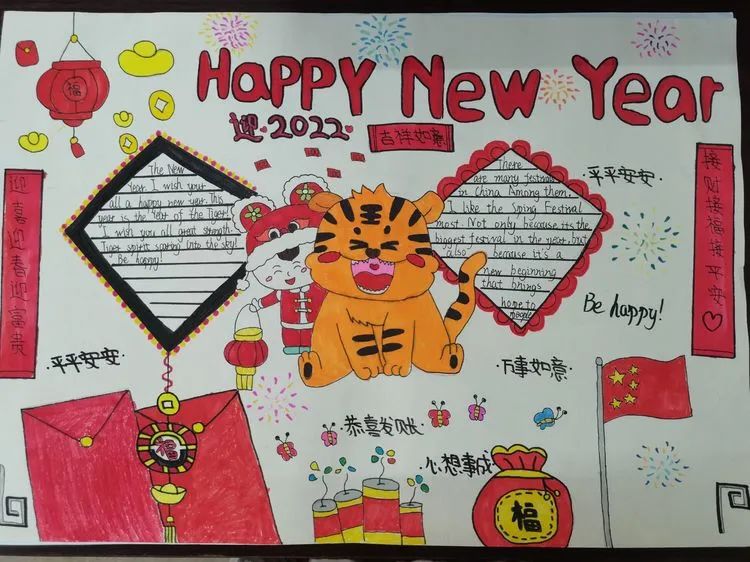 HAPPY New Year
迎·2022
吉祥如意
福
迎喜迎春迎富贵
接财接福接平安
The New
Year I wish your
all a happy new year. This
year is the Year of the Tiger.
I wish you all great strength.
Tiger spirit soaring into the sky!
Be happy!
There
are many festivals
in China Among them,
I like the Sping Festival
most. Not only because it's the
biggest festival in the year, but
also because it's a
new beginning
that brings
hope to
people
·平平安安·
Be happy!
·平平安安·
·万事如意·
恭喜发财
心想事成
福
福